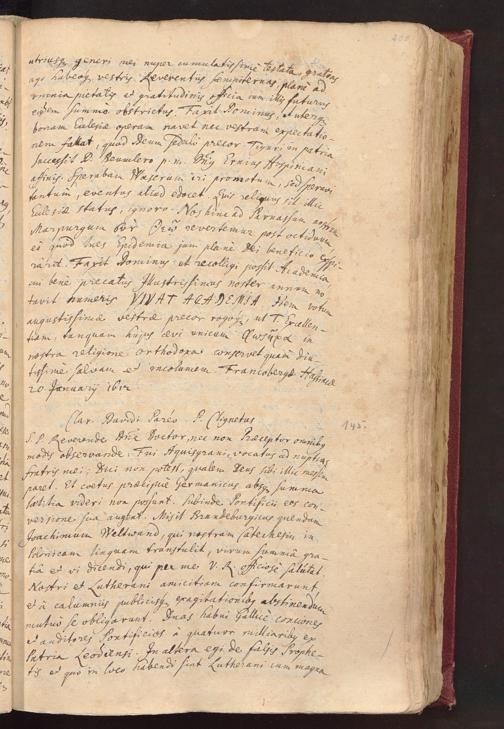 200
utriusq; generi mei nuper cumulatissime testata, gratias
ago habeoq; vestris Reverentiis sempiternas, plane ad
omnia pietatis et gratitudinis officia cum illis futurus
eidem summe obstrictus. Faxit Dominus, ut
bonam Ecclesiæ operam navet nec vestram expectatio-
nem fallat, quod Deum sedulò precor. Tiguri in patria
successit D. Beumlero p. m. Hospiniani
affinis. Sperabam Waserum iri promotum, sed
tantum, eventus aliud edocet. Quis reliquus sit illic
Ecclesiæ status, ignoro. Nos hinc ad Parnassum nostrum
Marpurgum revertemur post octiduum
eò quod lues Epidemia jam planè Dei beneficio expi-
rârit. Faxit Dominus et recolligi possit Academia,
cui bene precatus Illustrissimus noster annum no-
tavit numeris VIVAT ACADEMIA. Idem votum
augustissimæ vestræ precor rogoq; ut T. Excellen-
tiam, tanquam hujus ævi unicum in
nostra religione orthodoxa conservet quam diu-
tissime salvam et incolumem. Francobergæ Hassiacæ
20 Januarij
Clar. Davidi Paréo. P. Clignetus
142.
S. P. Reverende Dñe Doctor, nec non Præceptor omnibus
modis observande. Fui Aquisgrani, vocatus ad nuptias
fratris mei: Dici non potest, qualem Deus sibi illic messem
paret. Et cœtus præcipue Germanicus absq; summa
lætitia videri non possunt. Subinde Pontificii eos con-
versione sua augent. Misit Brandeburgicus quendam
Joachimum Weldwand, qui nostram Catechesin in
Polonicam linguam transtulit, virum summâ gra-
tiâ et vi dicendi, qui per me V. R. officiose salutat.
Nostri et Lutherani amicitiam confirmarunt
et à calumniis publicisq; exagitationibus abstinendum
mutuò se obligarunt. Duas habui Gallicè conciones
et auditores Pontificios à quatuor milliaribus ex
Patria Leodiensi. In altera egi de falsis Prophe-
tis et quo in loco habendi sint Lutherani cum magna